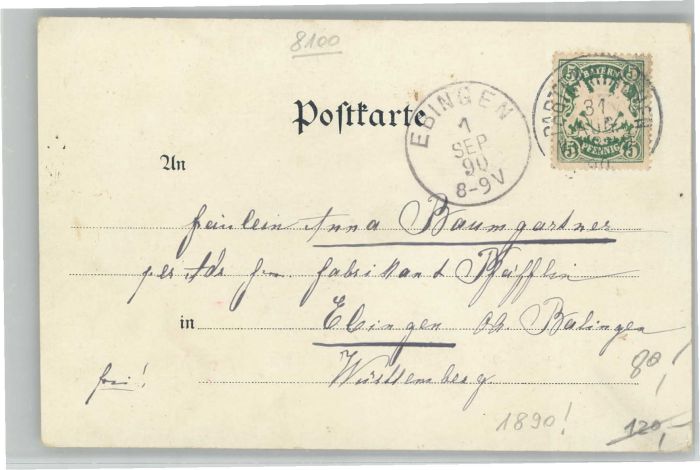 8100
Postkarte
EBINGEN
1
SEP
90
8-9V
5 BAYERN 5
31
AUG
90
5 PFENNIG 5
An
Fräulein Anna Baumgartner
per Adr Hrn Fabrikant Pfäfflin
in Ebingen OA. Balingen
Württemberg
frei!
80,!
1890!
120,-